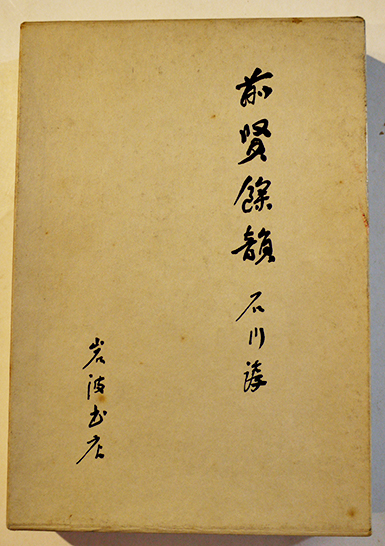 前賢餘韻 石川淳
岩波書店